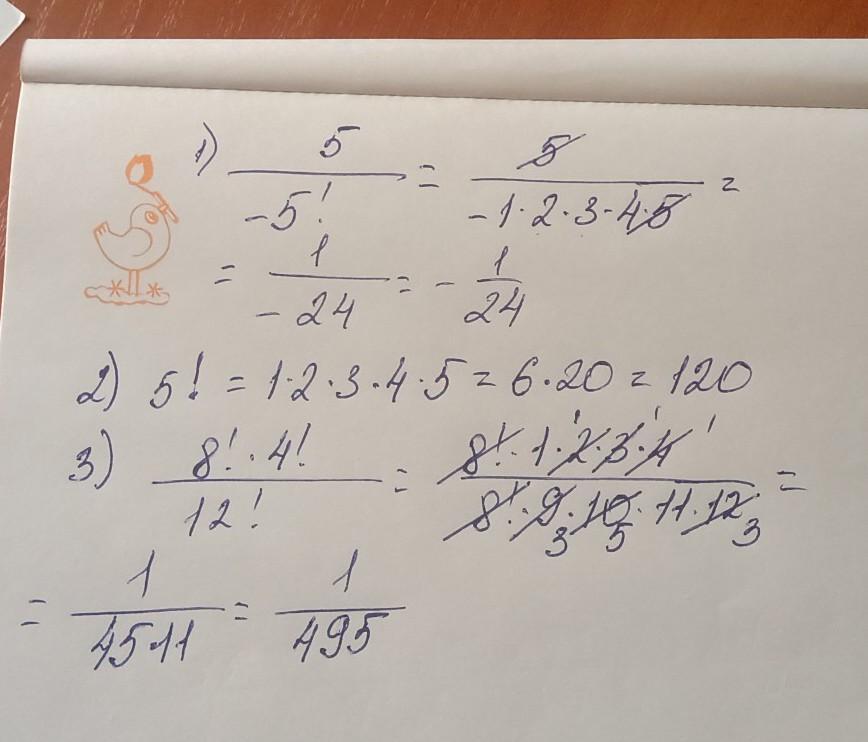 1) 5/-5! = 5/-1·2·3·4·5 =
= 1/-24 = - 1/24
2) 5! = 1·2·3·4·5 = 6·20 = 120
3) 8!·4!/12! = 8!·1·2·3·4/8!·9·10·11·12 = 1 1 1 3 5 3
= 1/45·11 = 1/495